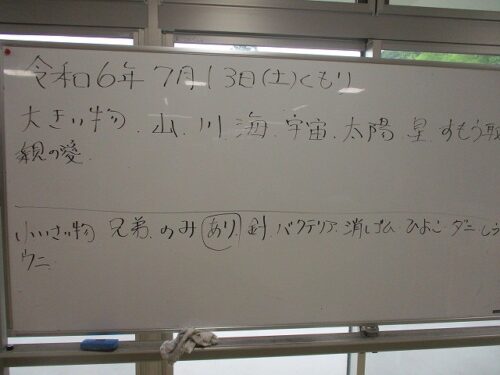 令和6年 7月13日(土)くもり
大きい物. 山. 川. 海. 宇宙. 太陽. 星. すもう取
親の愛.
小いさい物 兄弟. のみ あり. 針. バクテリア. 消しゴム. ひよこ ダニ. しら
ウニ